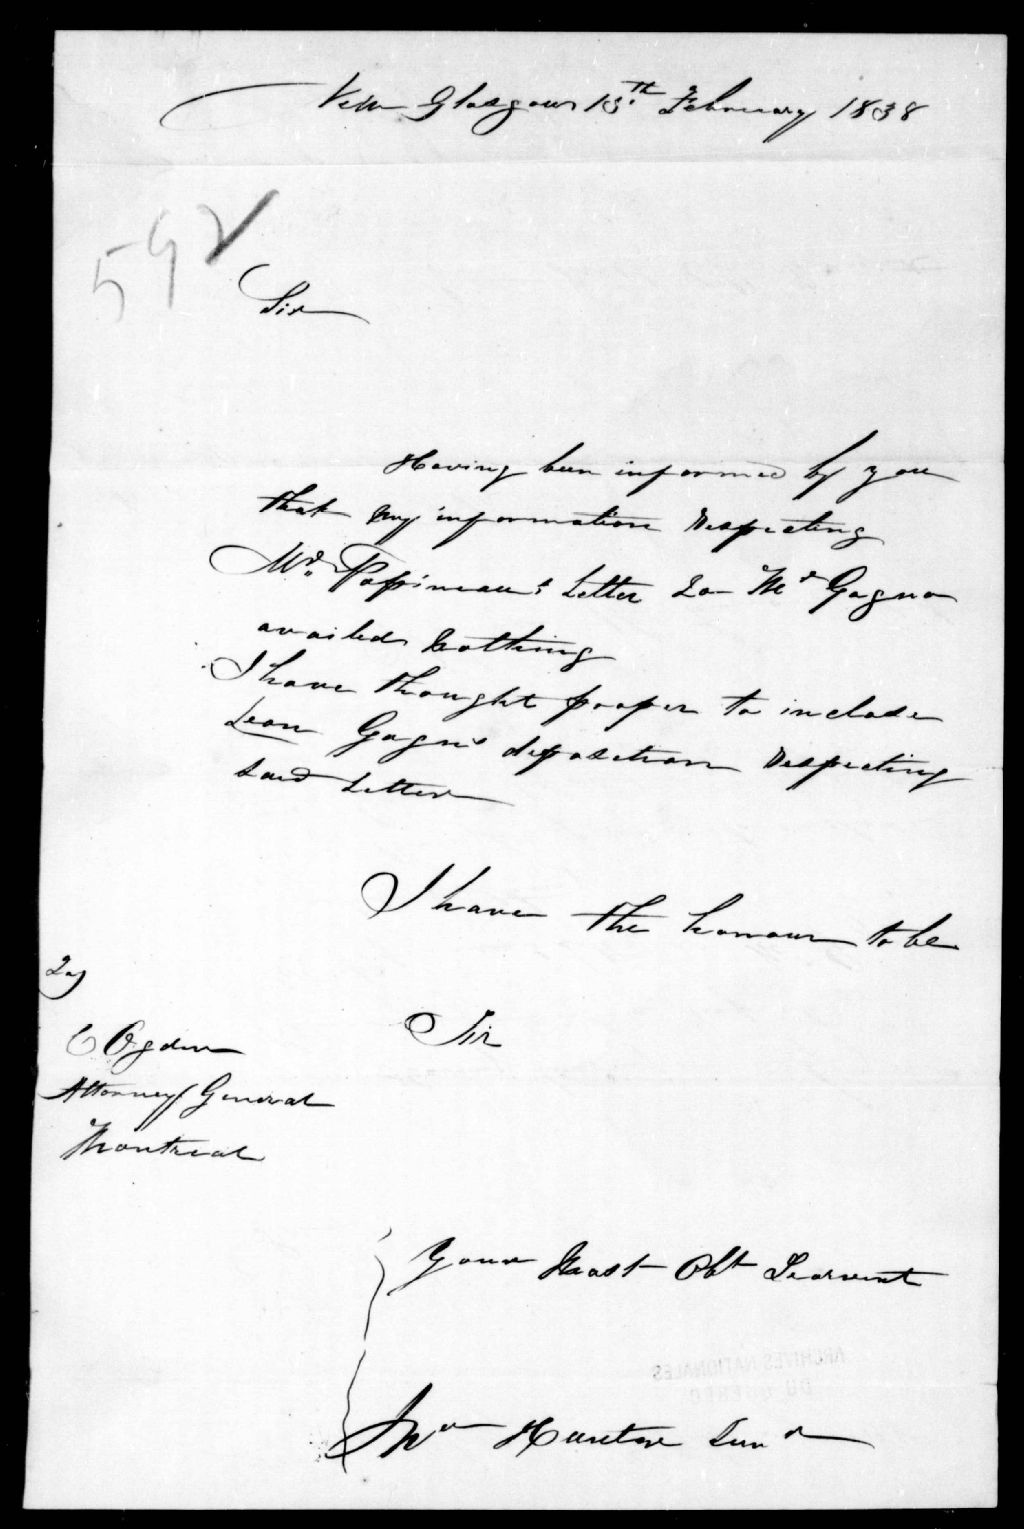 New Glasgow 13th February 1838
592
Sir
Having been informed by you
that my information Respecting
Mr. Pappineau's Letter To Mr Gagno
availed Nothing
I have thought proper to inclose
Leon Gagno deposetion Respecting
said Letter
I have the honour to be
Sir
To
C Ogden
Attorney General
Montreal
Your Most Obt Searvent
Hunter Junr
ARCHIVES NATIONALES
DU QUÉBEC